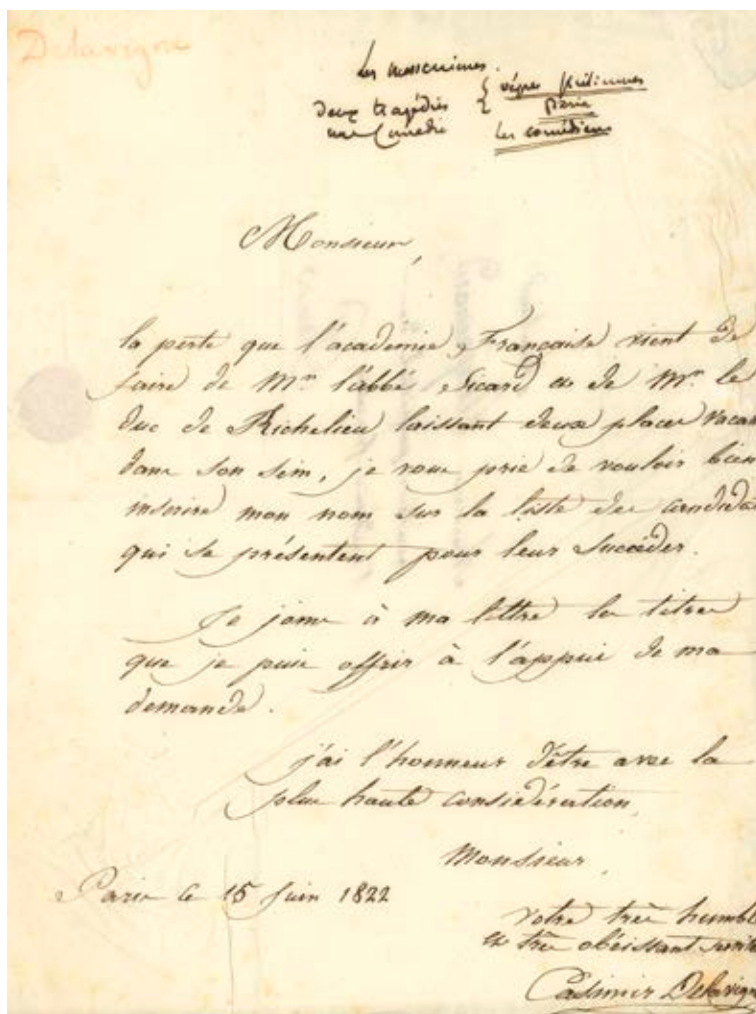 Delavigne
Les messeniennes.
deux tragédies { vêpres siciliennes
une Comédie { Paria
les comédiens
Monsieur,
la perte que l'académie Française vient de
faire de Mr. l'abbé Sicard et de Mr. le
duc de Richelieu laissant deux places vacan
dans son sein, je vous prie de vouloir bien
inscrire mon nom sur la liste des candida
qui se présentent pour leur succéder.
Je joins à ma lettre les titres
que je puis offrir à l'appui de ma
demande.
j'ai l'honneur d'être avec la
plus haute considération,
Monsieur,
Paris ce 15 Juin 1822
votre très humbl
et très obéissant servite
Casimir Delavigne